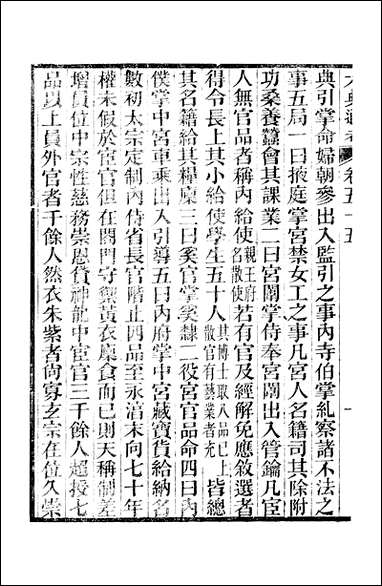 六典通考 卷五十五 一
典引掌命婦朝參出入監引之事內寺伯掌糾察諸不法之
事五局一曰掖庭掌宮禁女工之事凡宮人名籍司其除附
功桑養蠶會其課業二曰宮闈掌侍奉宮闈出入管鑰凡宦
人無官品者稱內給使親王府名散使若有官及經解免應敘選者
得令長上其小給使學生五十人其博士取八品已上散官有藝業者充皆總
其名籍給其糧廩三曰奚官掌奚隸工役宮官品命四曰內
僕掌中宮車乘出入引導五曰內府掌中宮藏寶貨給納名
數初太宗定制內侍省長官階止四品至永淳末向七十年
權未假於宦官但在閤門守禦黃衣廩食而已則天稱制差
增員位中宗性慈務崇恩貸神龍中宦官三千餘人超授七
品以上員外官者千餘人然衣朱紫者尚寡玄宗在位久崇